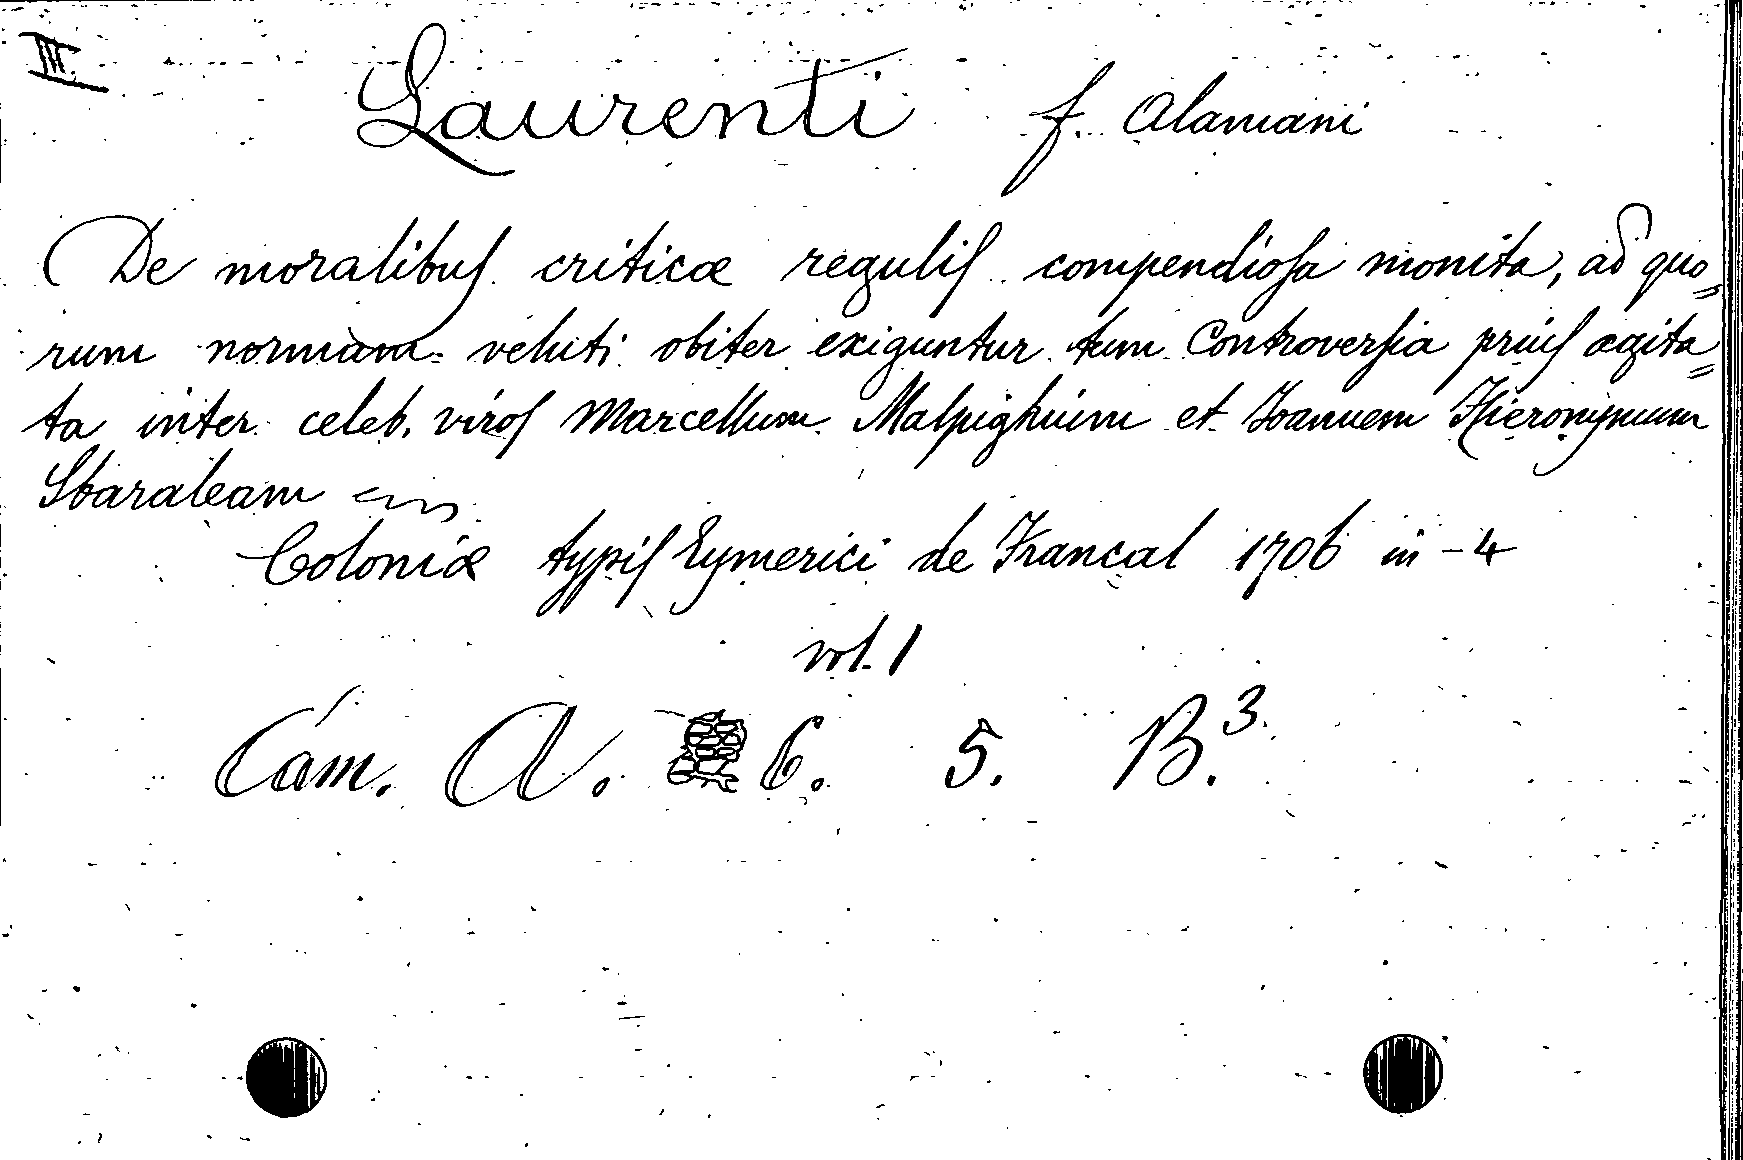 III.
Laurenti f. Alamani
De moralibus criticæ regulis compendiosa monita, ad quo=
rum normam veluti obiter exiguntur tum Controversia prius agita=
ta inter celeb. viros Marcellum Malpighium et Joannem Hieronymum
Sbaraleam
Coloniæ typis Eymerici de Francal 1706 in-4
vol. 1
Cam. A. 6. 5. B.3